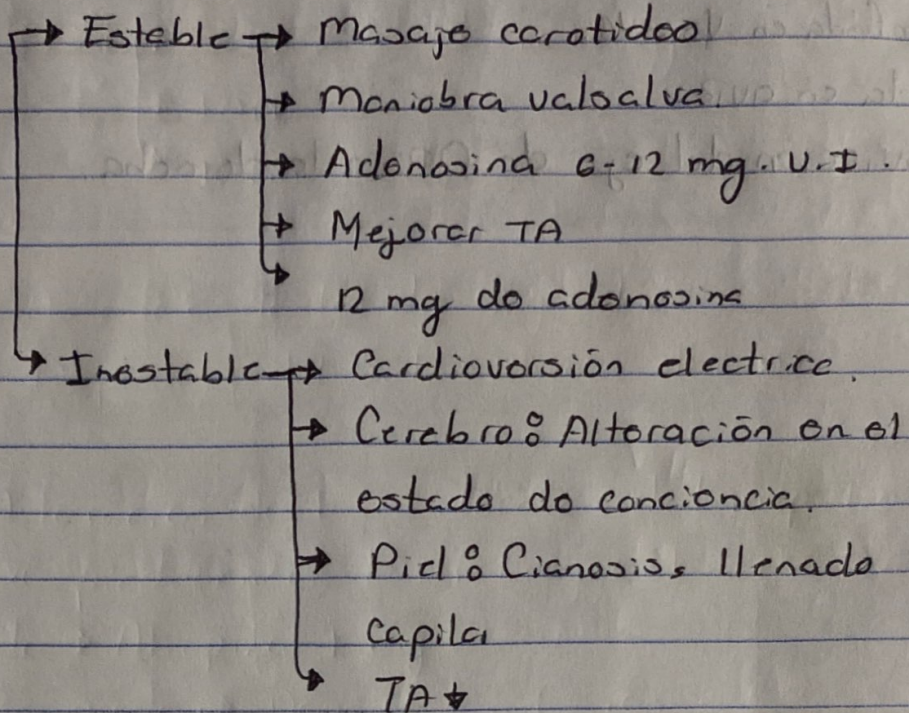 → Estable → Masaje carotideo
→ Maniobra valsalva.
→ Adenosina 6-12 mg. U.I.
→ Mejorar TA
→ 12 mg de adenosina
→ Inestable → Cardioversión electrica.
→ Cerebro: Alteración en el
estado de conciencia.
→ Piel: Cianosis, llenado
capilar
→ TA ↓